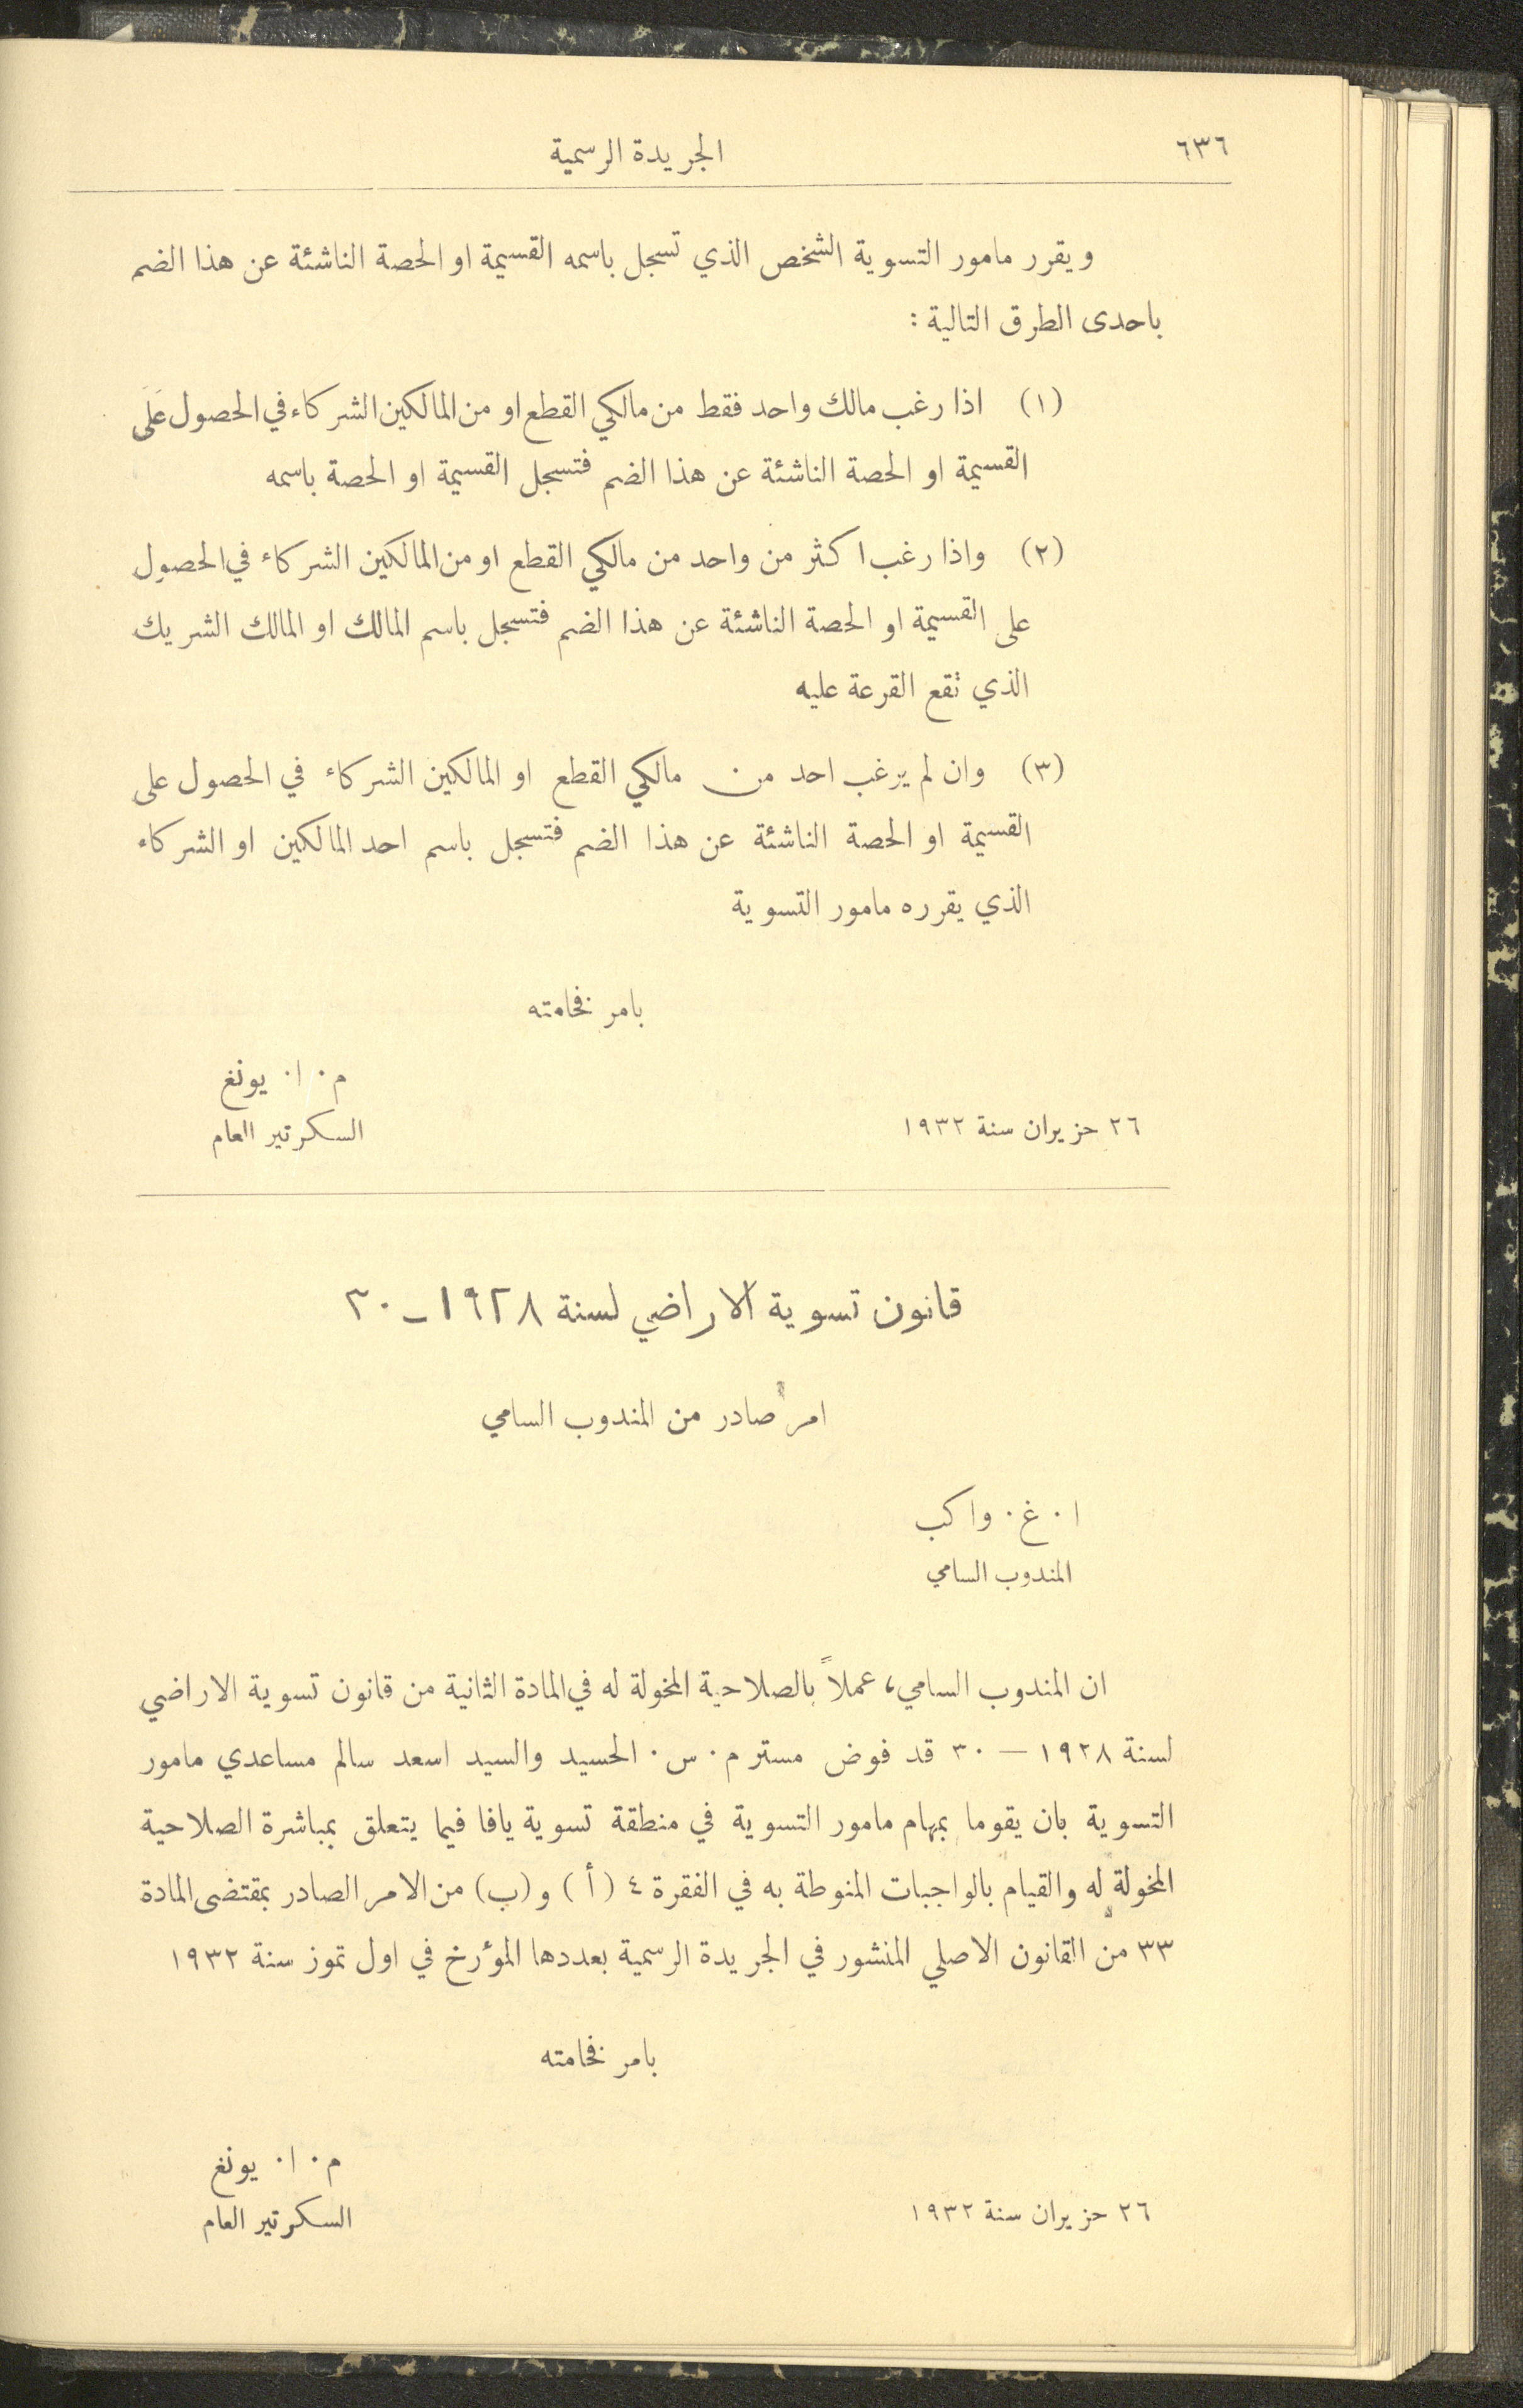 ٦٣٦
الجريدة الرسمية
ويقرر مامور التسوية الشخص الذي تسجل باسمه القسيمة او الحصة الناشئة عن هذا الضم
باحدى الطرق التالية :
(١) اذا رغب مالك واحد فقط من مالكي القطع او من المالكين الشركاء في الحصول عَلَى
القسيمة او الحصة الناشئة عن هذا الضم فتسجل القسيمة او الحصة باسمه
(٢) واذا رغب اكثر من واحد من مالكي القطع او من المالكين الشركاء في الحصول
على القسيمة او الحصة الناشئة عن هذا الضم فتسجل باسم المالك او المالك الشريك
الذي تقع القرعة عليه
(٣) وان لم يرغب احد من مالكي القطع او المالكين الشركاء في الحصول على
القسيمة او الحصة الناشئة عن هذا الضم فتسجل باسم احد المالكين او الشركاء
الذي يقرره مامور التسوية
بامر فخامته
م٠ ا٠ يونغ
٢٦ حزيران سنة ١٩٣٢
السكرتير العام
قانون تسوية الاراضي لسنة ١٩٢٨ــ٣٠
امر صادر من المندوب السامي
ا٠ غ٠ واكب
المندوب السامي
ان المندوب السامي، عملاً بالصلاحية المخولة له في المادة الثانية من قانون تسوية الاراضي
لسنة ١٩٢٨ — ٣٠ قد فوض مستر م٠ س٠ الحسيد والسيد اسعد سالم مساعدي مامور
التسوية بان يقوما بمهام مامور التسوية في منطقة تسوية يافا فيما يتعلق بمباشرة الصلاحية
المخولة له والقيام بالواجبات المنوطة به في الفقرة ٤ (أ) و (ب) من الامر الصادر بمقتضى المادة
٣٣ من القانون الاصلي المنشور في الجريدة الرسمية بعددها المؤرخ في اول تموز سنة ١٩٣٢
بامر فخامته
م٠ ا٠ يونغ
٢٦ حزيران سنة ١٩٣٢
السكرتير العام